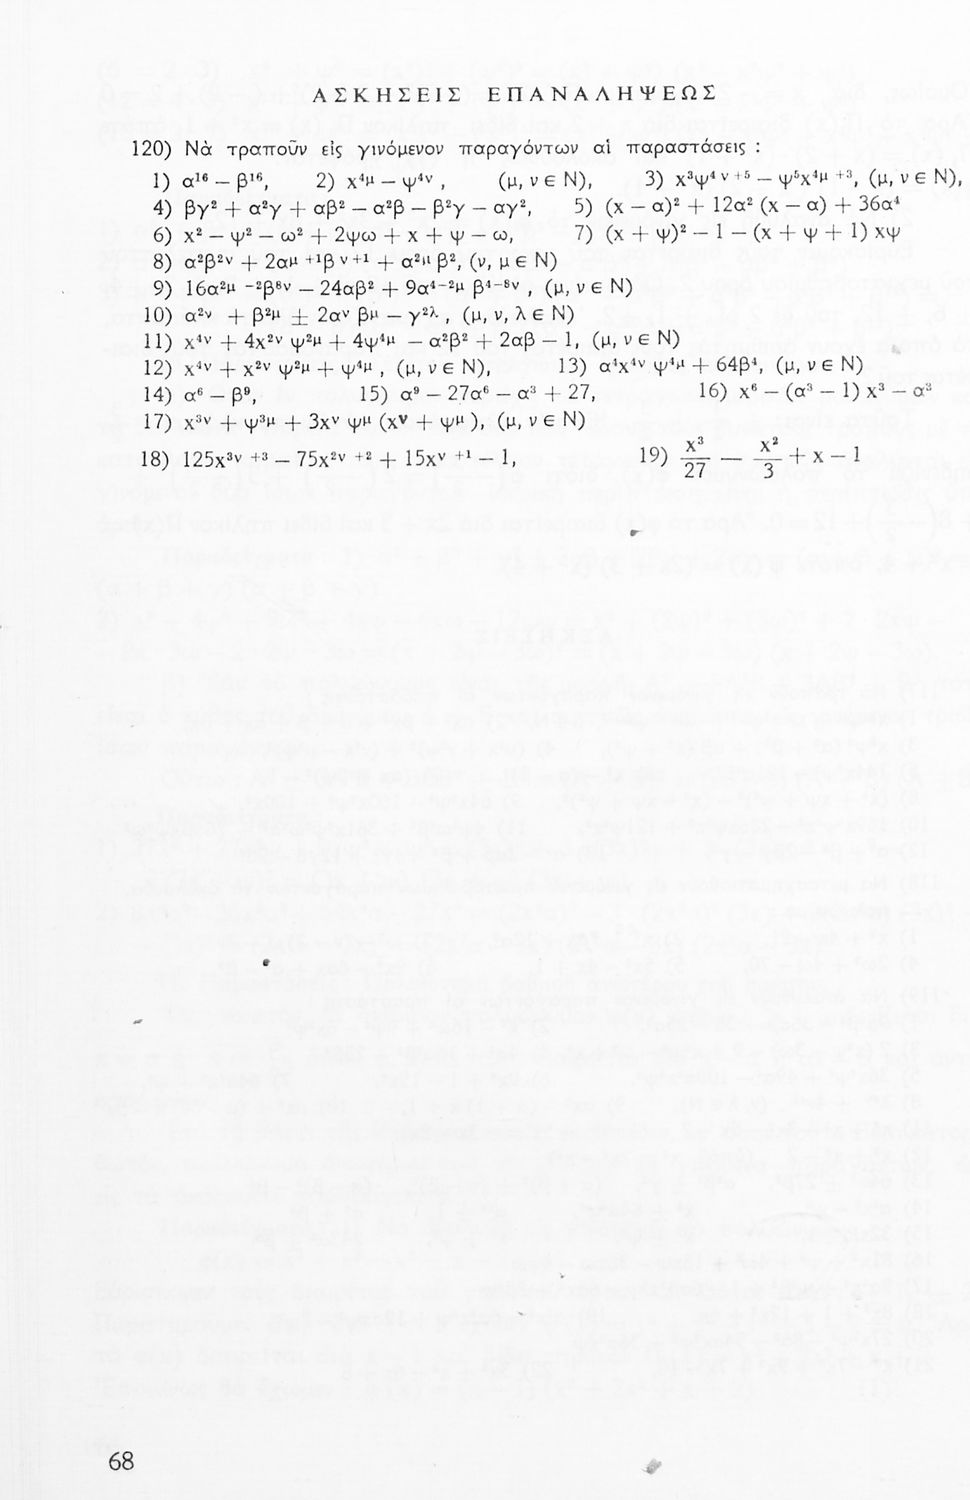 ΑΣΚΗΣΕΙΣ ΕΠΑΝΑΛΗΨΕΩΣ
120) Νὰ τραποῦν εἰς γινόμενον παραγόντων αἱ παραστάσεις :
1) α¹⁶ – β¹⁶, 2) x⁴ᵘ – ψ⁴ᵛ , (μ, ν ∈ N), 3) x³ψ⁴ ᵛ ⁺⁵ – ψ⁵x⁴ᵘ ⁺³, (μ, ν ∈ N),
4) βγ² + α²γ + αβ² – α²β – β²γ – αγ², 5) (x – α)² + 12α² (x – α) + 36α⁴
6) x² – ψ² – ω² + 2ψω + x + ψ – ω, 7) (x + ψ)² – 1 – (x + ψ + 1) xψ
8) α²β²ᵛ + 2αᵘ ⁺¹β ᵛ⁺¹ + α²ᵘ β², (ν, μ ∈ N)
9) 16α²ᵘ ⁻²β⁸ᵛ – 24αβ² + 9α⁴⁻²ᵘ β⁴⁻⁸ᵛ , (μ, ν ∈ N)
10) α²ᵛ + β²ᵘ ± 2αᵛ βᵘ – γ²λ , (μ, ν, λ ∈ N)
11) x⁴ᵛ + 4x²ᵛ ψ²ᵘ + 4ψ⁴ᵘ – α²β² + 2αβ – 1, (μ, ν ∈ N)
12) x⁴ᵛ + x²ᵛ ψ²ᵘ + ψ⁴ᵘ , (μ, ν ∈ N), 13) α⁴x⁴ᵛ ψ⁴ᵘ + 64β⁴, (μ, ν ∈ N)
14) α⁶ – β⁹, 15) α⁹ – 27α⁶ – α³ + 27, 16) x⁶ – (α³ – 1) x³ – α³
17) x³ᵛ + ψ³ᵘ + 3xᵛ ψᵘ (xᵛ + ψᵘ ), (μ, ν ∈ N)
18) 125x³ᵛ ⁺³ – 75x²ᵛ ⁺² + 15xᵛ ⁺¹ – 1, 19) x³/27 – x²/3 + x – 1
68